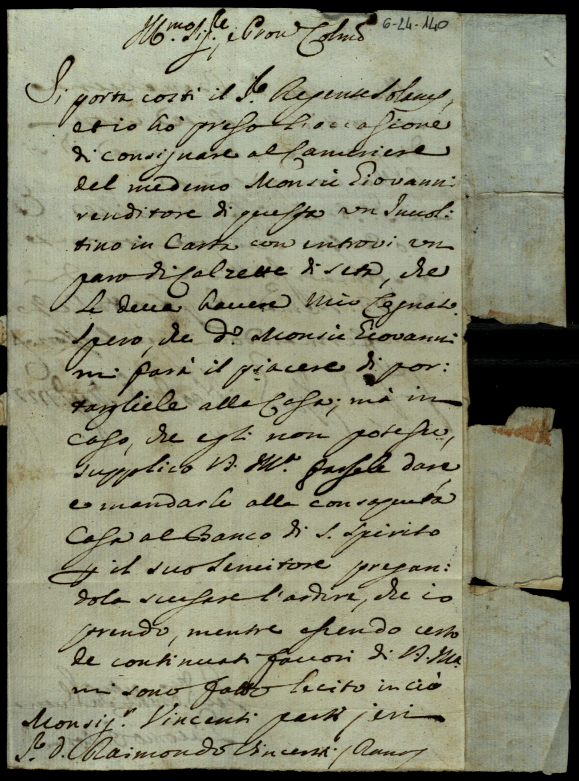 6-24-140
Ill.mo Sig.re, e Pron. Colmo
Si porta costì il S.r Regense Solanes,
et io hò preso l'occasione
di consignare al Cameriere
del medemo Monsù Giovanni
venditore di questa un Invol:
tino in Carta con entrovi un
paro di Calzette di seta, che
le deve havere mio Cognato
Spero, che d.o Monsù Giovanni
mi farà il piacere di por:
targliele alla Casa; mà in
caso, che egli non potesse,
supplico V. Ill.ma farsele dare
e mandarle alla consaputa
Casa al Banco di S. Spirito
il suo Servitore pregan:
dola scusare l'ardire, che io
prendo, mentre essendo certo
de continuati favori di V. Ill.ma
mi sono fatto lecito in ciò
Monsig.r Vincenti partì jeri
S.r D. Raimondo Vincenti